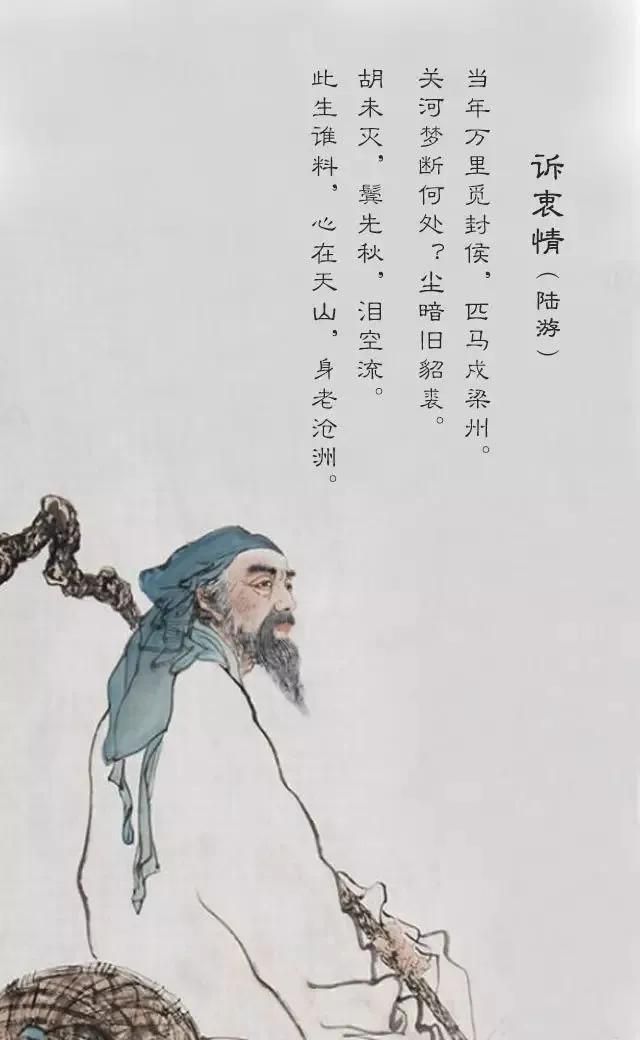 诉衷情（陆游）
当年万里觅封侯，匹马戍梁州。
关河梦断何处？尘暗旧貂裘。
胡未灭，鬓先秋，泪空流。
此生谁料，心在天山，身老沧洲。